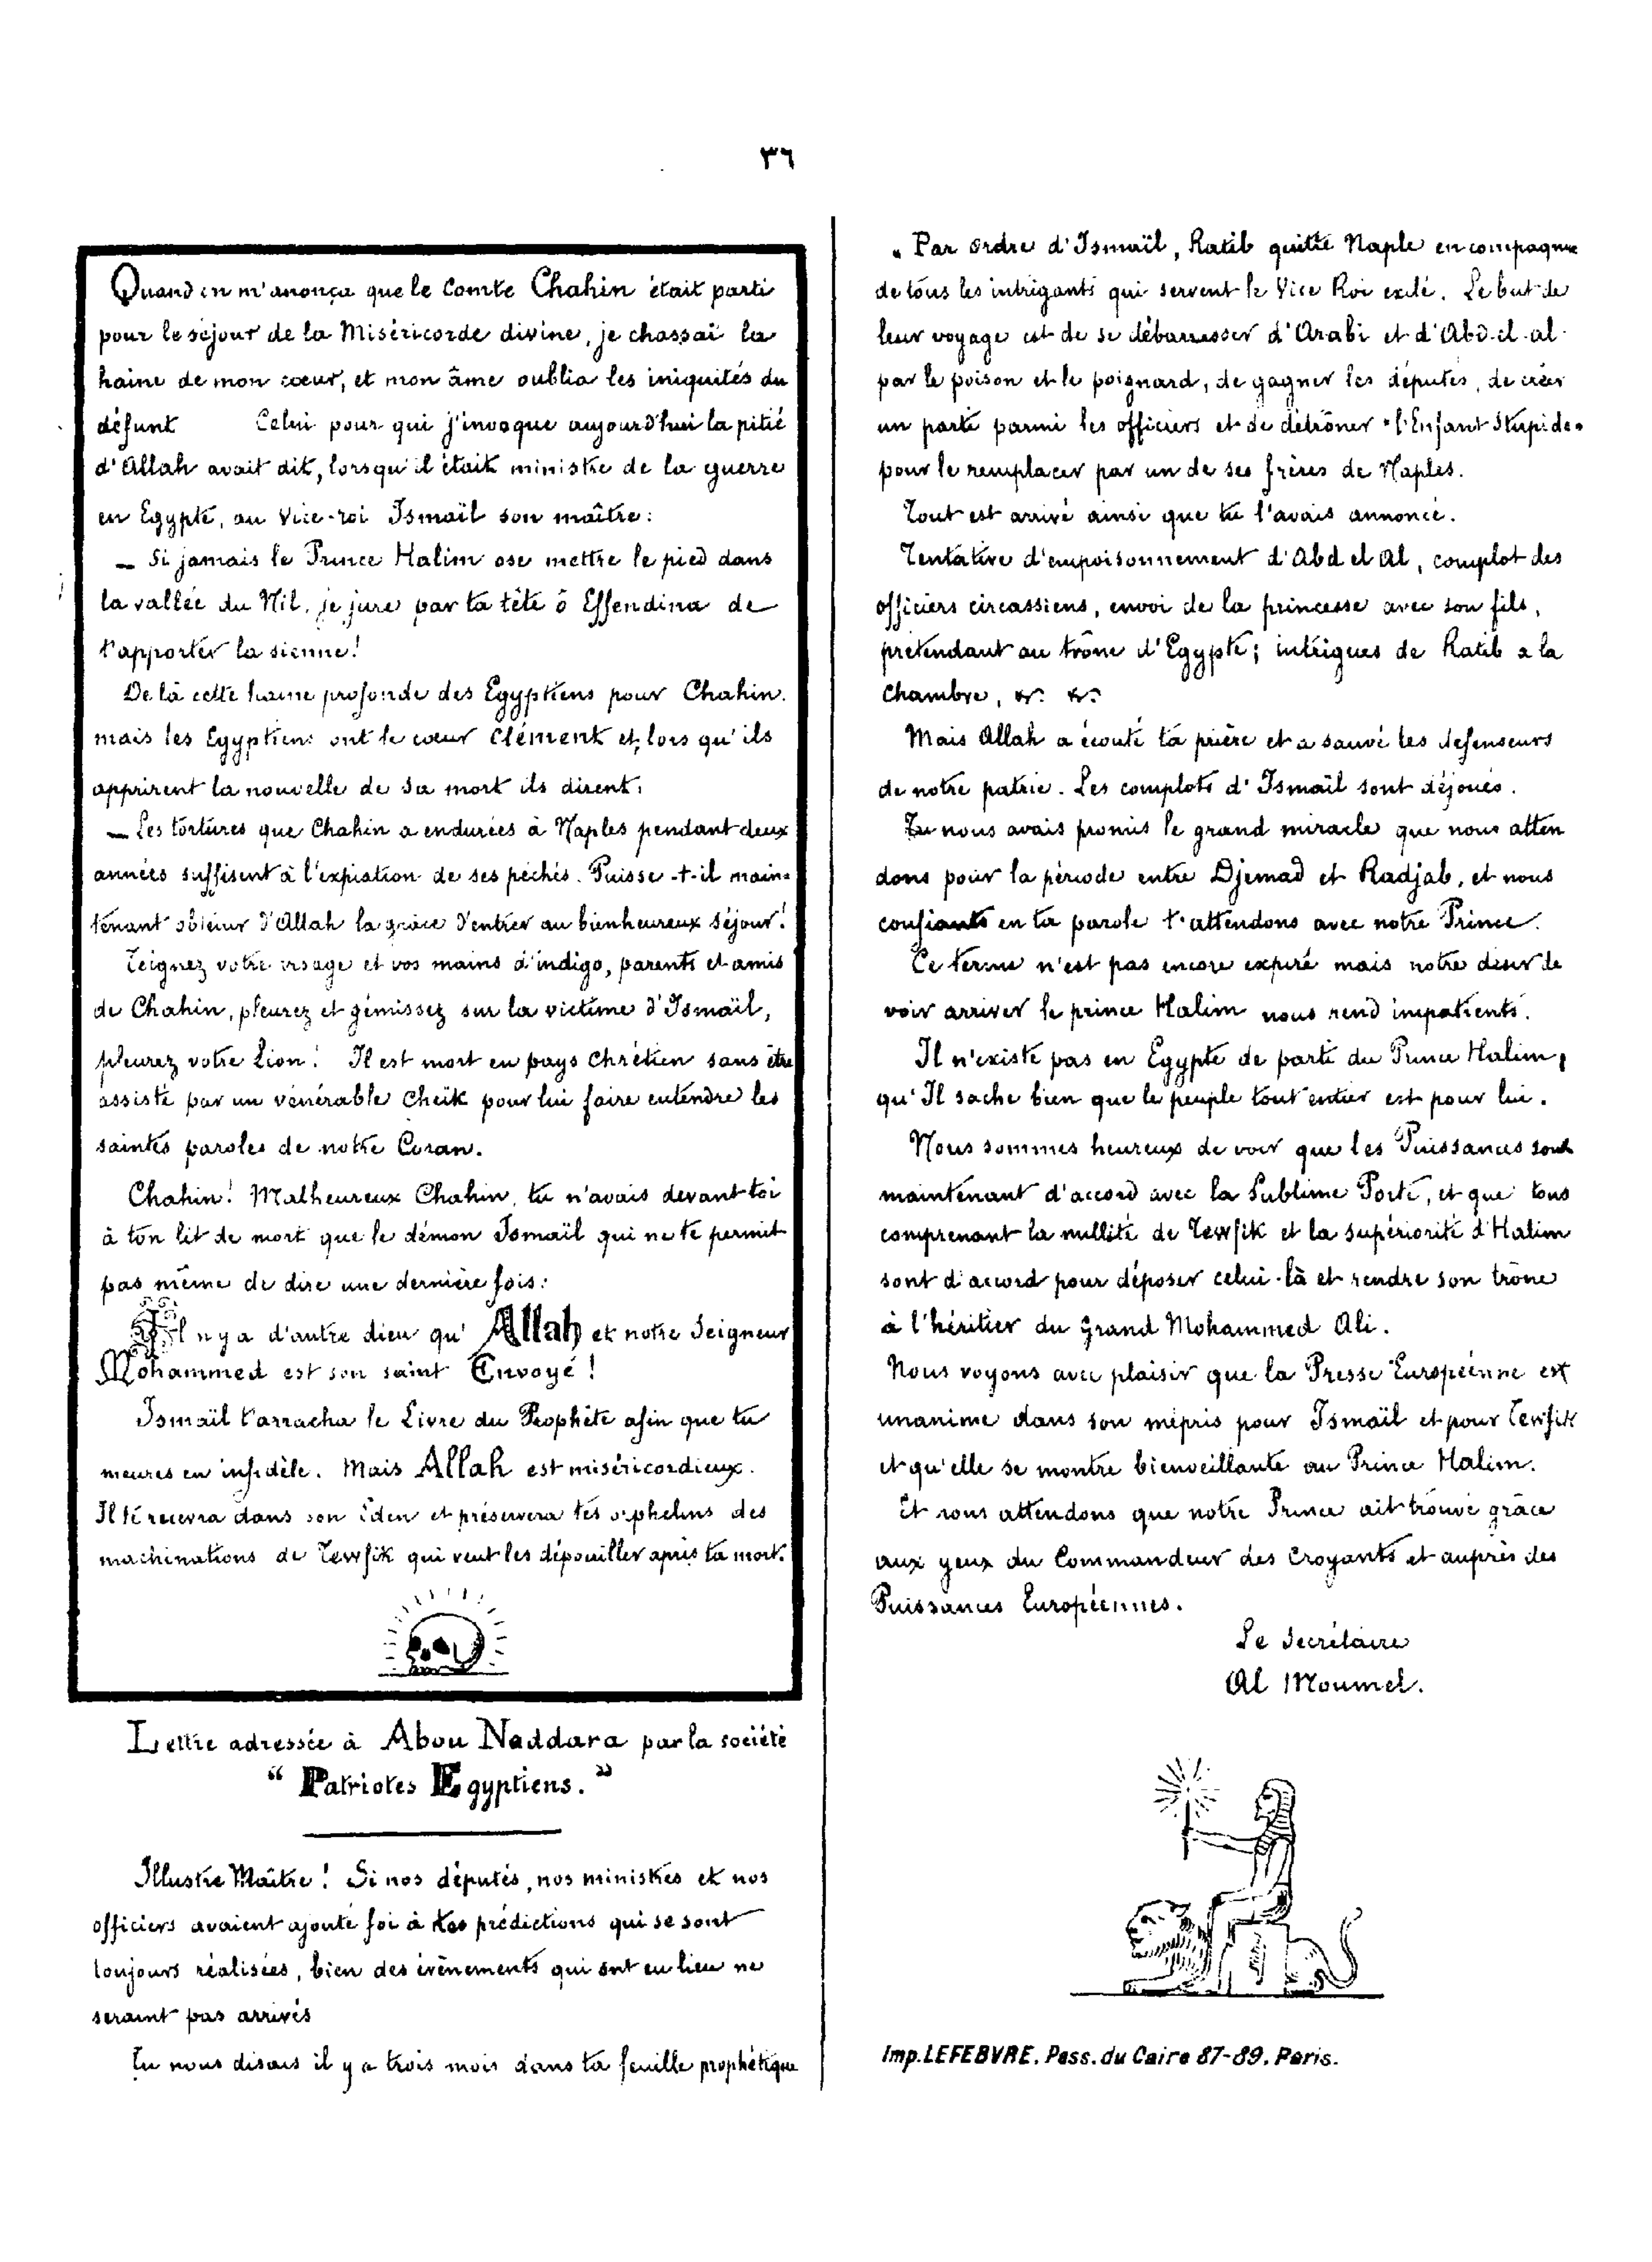 ٣٦
Quand on m'anonça que le Comte Chahin était parti
pour le séjour de la Miséricorde divine, je chassai la
haine de mon cœur, et mon âme oublia les iniquités du
défunt Celui pour qui j'invoque aujourd'hui la pitié
d'Allah avait dit, lorsqu'il était ministre de la guerre
en Egypte, au Vice-roi Ismaïl son maître:
— Si jamais le Prince Halim ose mettre le pied dans
la vallée du Nil, je jure par ta tête ô Effendina de
t'apporter la sienne!
De là cette haine profonde des Egyptiens pour Chahin.
mais les Egyptiens ont le cœur clément et, lors qu'ils
apprirent la nouvelle de sa mort ils dirent:
— Les tortures que Chahin a endurées à Naples pendant deux
années suffisent à l'expiation de ses péchés. Puisse-t-il main-
tenant obtenir d'Allah la grâce d'entrer au bienheureux séjour!
Teignez votre visage et vos mains d'indigo, parents et amis
de Chahin, pleurez et gémissez sur la victime d'Ismaïl,
pleurez votre Lion! Il est mort en pays chrétien sans être
assisté par un vénérable cheik pour lui faire entendre les
saintes paroles de notre Coran.
Chahin! Malheureux Chahin, tu n'avais devant toi
à ton lit de mort que le démon Ismaïl qui ne te permit
pas même de dire une dernière fois:
Il n'y a d'autre dieu qu' Allah et notre Seigneur
Mohammed est son saint Envoyé!
Ismaïl t'arracha le Livre du Prophète afin que tu
meures en infidèle. Mais Allah est miséricordieux.
Il te recevra dans son Eden et préservera tes orphelins des
machinations de Tewfik qui veut les dépouiller après ta mort.
Lettre adressée à Abou Naddara par la société
" Patriotes Egyptiens. "
Illustre Maître! Si nos députés, nos ministres et nos
officiers avaient ajouté foi à tes prédictions qui se sont
toujours réalisées, bien des évènements qui ont eu lieu ne
seraint pas arrivés
Tu nous disais il y a trois mois dans ta feuille prophétique
« Par ordre d'Ismaïl, Ratib quitte Naple en compagnie
de tous les intrigants qui servent le Vice Roi exilé. Le but de
leur voyage est de se débarrasser d'Arabi et d'Abd-el-al
par le poison et le poignard, de gagner les députés, de créer
un parti parmi les officiers et de détrôner «l'Enfant Stupide»
pour le remplacer par un de ses frères de Naples.
Tout est arrivé ainsi que tu l'avais annoncé.
Tentative d'empoisonnement d'Abd el Al, complot des
officiers circassiens, envoi de la princesse avec son fils,
prétendant au trône d'Egypte; intrigues de Ratib a la
chambre, &. &.
Mais Allah a écouté ta prière et a sauvé les defenseurs
de notre patrie. Les complots d'Ismaïl sont déjoués.
Tu nous avais promis le grand miracle que nous atten
dons pour la période entre Djemad et Radjab, et nous
confiants en ta parole t'attendons avec notre Prince.
Ce terme n'est pas encore expiré mais notre desir de
voir arriver le prince Halim nous rend impatients.
Il n'existe pas en Egypte de parti du Prince Halim,
qu'Il sache bien que le peuple tout entier est pour lui.
Nous sommes heureux de voir que les Puissances sont
maintenant d'accord avec la Sublime Porte, et que tous
comprenant la nullité de Tewfik et la supériorité d'Halim
sont d'accord pour déposer celui-là et rendre son trône
à l'héritier du Grand Mohammed Ali.
Nous voyons avec plaisir que la Presse Européenne est
unanime dans son mépris pour Ismaïl et pour Tewfik
et qu'elle se montre bienveillante au Prince Halim.
Et nous attendons que notre Prince ait trouvé grâce
aux yeux du Commandeur des Croyants et auprès des
Puissances Européennes.
Le Secrétaire
Al Moumel.
Imp. LEFEBVRE. Pass. du Caire 87-89. Paris.